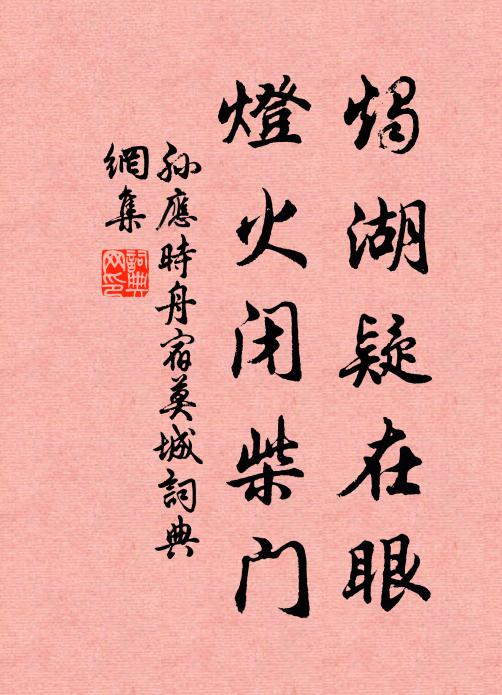 烛湖疑在眼
燈火闭柴门
孙應時舟宿莫城詞典
網集
詞典
网印